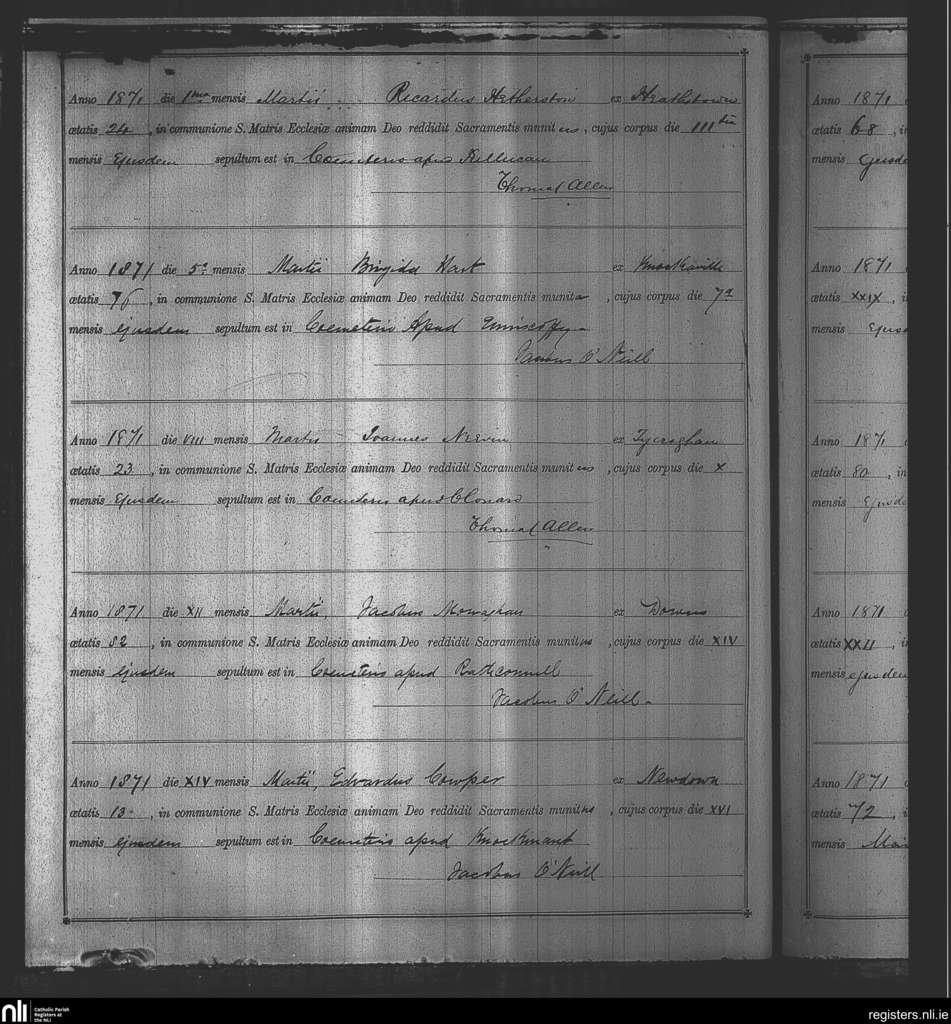 Anno 1871 die 1ma mensis Martii Ricardus Hetherston ex Heathstown
ætatis 24, in communione S. Matris Ecclesiæ animam Deo reddidit Sacramentis munitus, cujus corpus die III tia
mensis Ejusdem sepultum est in Coemeterio apud Killucan
Thomas Allen
Anno 1871 die 5a mensis Martii Brigida Hart ex Knockaville
ætatis 76, in communione S. Matris Ecclesiæ animam Deo reddidit Sacramentis munita, cujus corpus die 7a
mensis ejusdem sepultum est in Coemeterio Apud Enniscoffy
O'Neill
Anno 1871 die VIII mensis Martii Joannes Nervin ex Tycroghan
ætatis 23, in communione S. Matris Ecclesiæ animam Deo reddidit Sacramentis munitus, cujus corpus die X
mensis Ejusdem sepultum est in Coemeterio apud Clonard
Thomas Allen
Anno 1871 die XII mensis Martii, Jacobus Monaghan ex Downs
ætatis 82, in communione S. Matris Ecclesiæ animam Deo reddidit Sacramentis munitus, cujus corpus die XIV
mensis ejusdem sepultum est in Coemeterio apud Rathconnell
Jacobus O'Neill
Anno 1871 die XIV mensis Martii, Edvardus Cowper ex Newdown
ætatis 13, in communione S. Matris Ecclesiæ animam Deo reddidit Sacramentis munitus, cujus corpus die XVI
mensis ejusdem sepultum est in Coemeterio apud Knockmant
Jacobus O'Neill
Anno 1871
ætatis 68, i
mensis Ejusde
Anno 1871
ætatis XXIX, i
mensis Ejusd
Anno 1871
ætatis 80, in
mensis Ejusde
Anno 1871
ætatis XXII, i
mensis ejusdem
Anno 1871
ætatis 72, i
mensis Mai
nli
Catholic Parish
Registers at
the NLI
registers.nli.ie